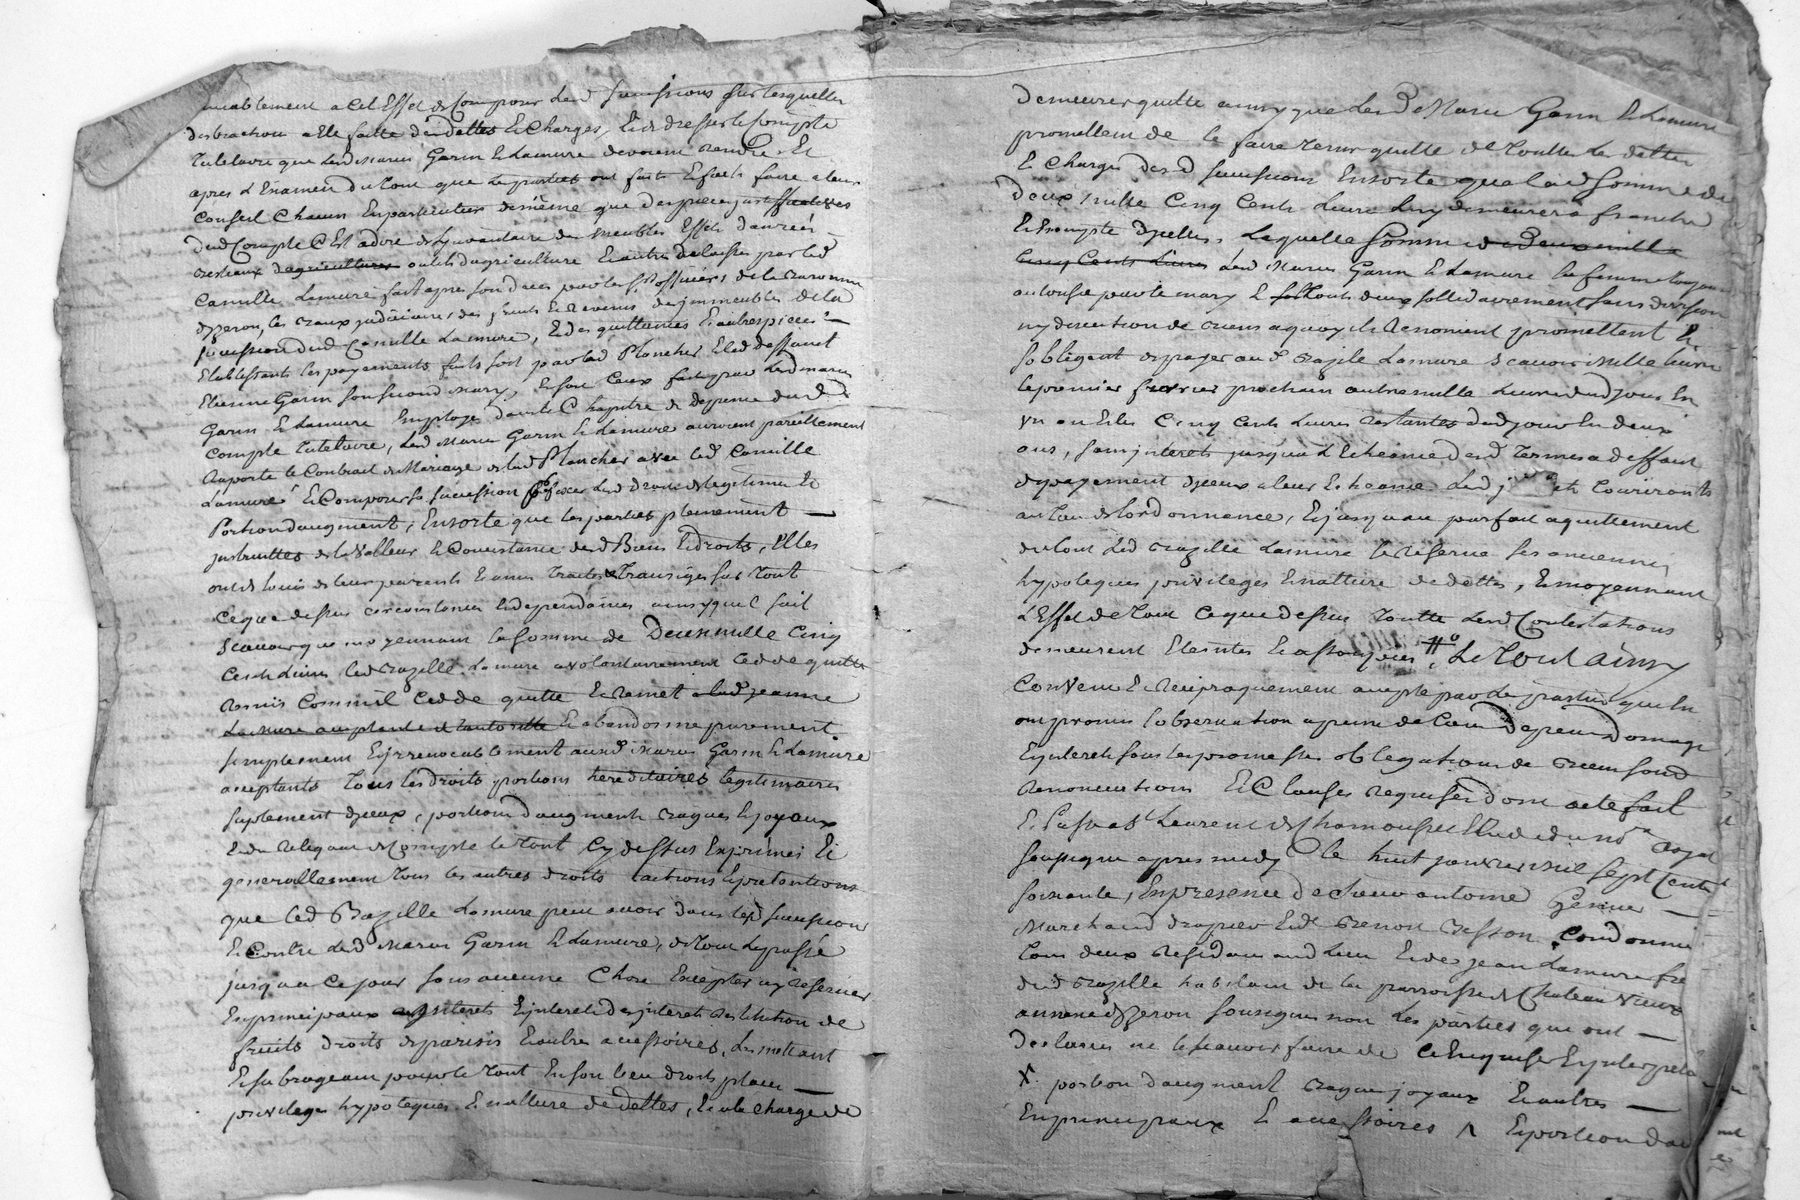 a Cet Effet de Composer lesd successions sur lesquelles
distraction a Ete faitte desdettes & Charges, Et de dresser le Compte
Tutelaire que lesd maries Garin & Lamure devoient rendre, Et
apres L Examen du tout que les parties ont faits & fait faire a leur
Conseil Chacun En particulier de même que des pieces justificatives
dud Compte C Est adire de Lynvantaire des meubles Effets danrées
bestiaux dagricultures outils dagriculture & autres delaisses par led
Camille Lamure fait apres son deces par les Srs officiers de la Baronnie
dyzeron, les Baux judiciaires des fruits & Revenus des jmmeubles de la
succession dud Camille Lamure, & des quittances & autres pieces
Etablissants les payements faits soit par lad Plancher & led deffunt
Etienne Garin son second mary, & son Ceux faits par lesd maries
Garin & Lamure Employes dans le Chapitre de depense dud
Compte Tutelaire, lesd Maries Garin & Lamure auroient pareillement
Raporte le Contract de Mariage de lad Plancher avec led Camille
Lamure & Compose sa succession lesd droits de legitime &
Portion daugment, Ensorte que les parties pleinement
justruittes de la Valleur & Consistance desd Biens & droits, Elles
ont de lavis de leurs parents & amis Traite & Transiges sur Tout
Ceque dessus circonstances & dependances ainsy que C suit
Scavoir que moyennant la somme de Deux mille Cinq
Cents Livres led Bazille Lamure a volontairement Cedde quitte
Remis Comme il Cedde quitte & Remet a lad jeanne
Lamure acceptante et & abandonne purement
simplement & jrrevocablement auxd Maries Garin & Lamure
acceptants Tous les droits portions hereditaires legitimaires
suplement dyceux, portion daugment bagues & joyaux
& du Reliqua de Compte le Tout Cy dessus Exprimes Et
generallement Tous les autres droits actions & pretentions
que led Bazille Lamure peut avoir dans lesd successions
& Contre lesd Maries Garin & Lamure, de Tout le passé
jusqua Ce jour sans aucune Chose Excepter ny Reserver
En principaux jnterets & jnterets d jnterets Restitution de
fruits droits de parisis & autres accessoires, Les mettant
& subrogeant pour le Tout En son lieu droit place
privileges hypoteques & natture de dettes, & a la charge de
demeurer quitte ainsy que Lesd Maries Garin & Lamure
promettent de le faire Tenir quitte de Touttes les dettes
& Charges desd successions Ensorte que la d somme de
deux mille Cinq Cents Livres luy demeurera franche
& Exempte dycelles, Laquelle somme de Deux mille
Cinq Cents Livres Lesd Maries Garin & Lamure la femme toujours
authorisee par le mary & Tous deux sollidairement sans division
ny discution de biens a quoy ils Renoncent promettent &
sobligent de payer aud Bazile Lamure Scavoir mille livres
le premier fevrier prochain autre mille Livres dud jour En
un an & les Cinq Cents Livres Restantes dud jour En deux
ans, sans jnterets jusqua L Echeance desd Termes a deffaut
de payement dyceux a leur Echeance Lesd jnterets Courriront
au Taux de lordonnance, & jusquau parfait aquittement
du tout led Bazille Lamure se Reserve ses anciennes
hypoteques privileges & natture de dettes, & moyennant
L Effet de Tout Ceque dessus Touttes Lesd Contestations
demeurent Eteintes & assoupies, Le Tout ainsy
Convenu & Reciproquement accepte par les parties qui En
ont promis l observation a peine de Tous depens Domage
& jnterets sous les promesses obligations de Biens soub
Renonciations & Clauses Requises dont acte fait
& Passé a St Laurent de Chamousset Etude du No Royal
soussigne apres midy le huit janvier mil sept Cents
soixante, En presence de sieur antoine
Marchand drapier & de Benoit Besson Cordonnier
Tous deux Residants aud Lieu & de jean Lamure fre
dud Bazille habitant de la parroisse de Chateau vieux
annexe dyzeron soussignes non les parties qui ont
declares ne le scavoir faire de Ce Enquises & jnterpele
X. portion daugment bagues joyaux & autres
En principaux & accessoires /\ & portion dau